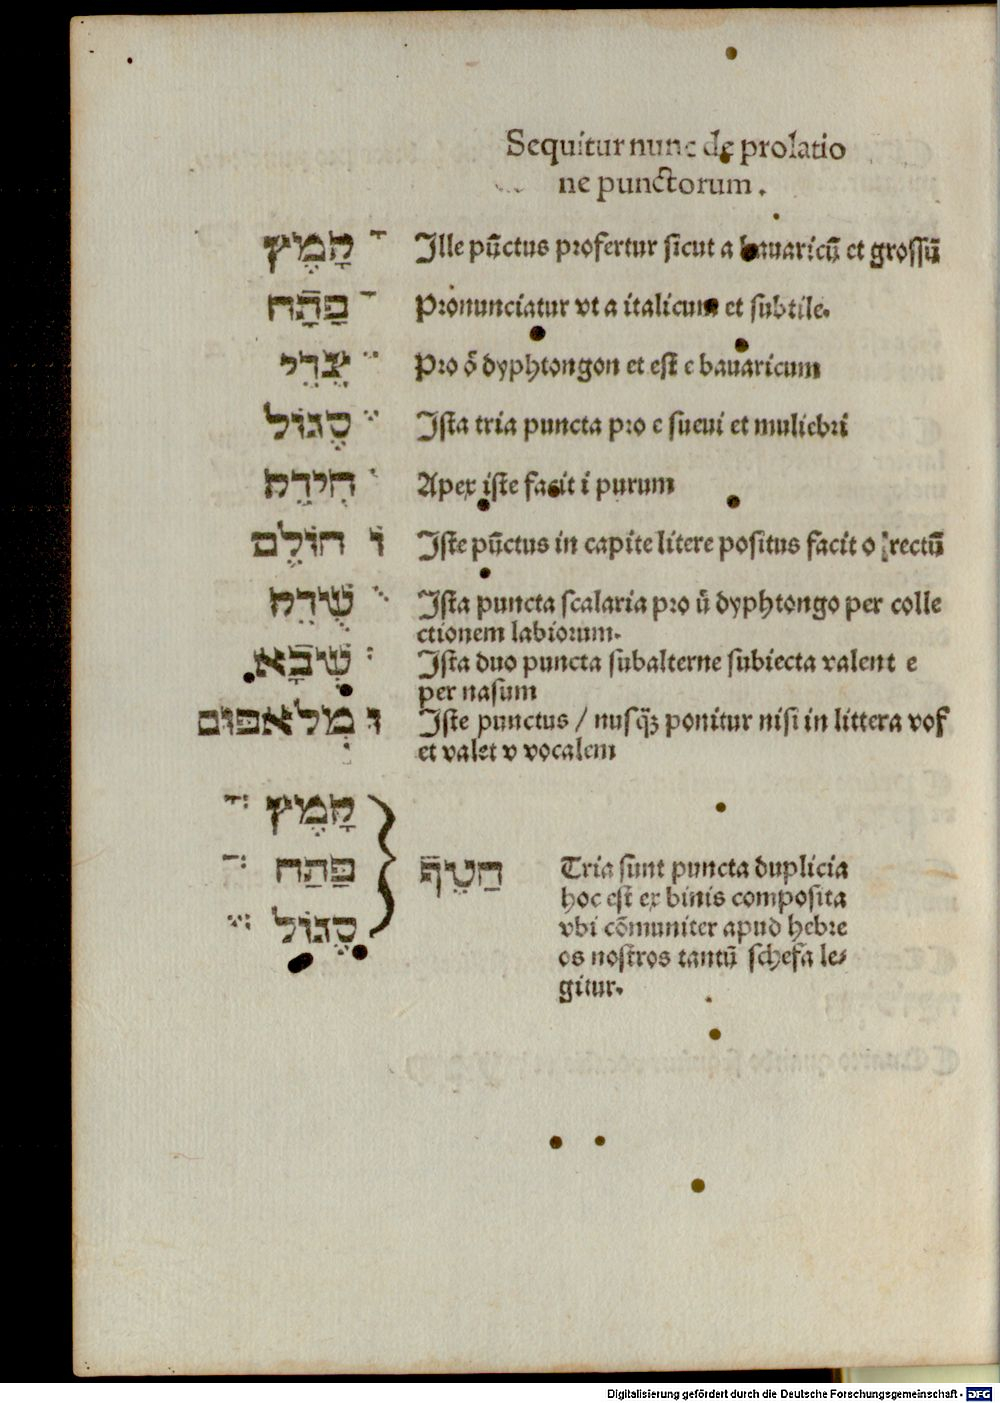 Sequitur nunc de prolatio
ne punctorum.
קָמֶץ Ille pũctus profertur sicut a bauaricũ et grossũ
פַּתָּח Pronunciatur vt a italicum et subtile.
צֱרֵי Pro ö dyphtongon et est e bauaricum
סֶגוֹל Ista tria puncta pro e sueui et muliebri
חִירֵק Apex iste facit i purum
וֹ חוֹלֶם Iste pũctus in capite litere positus facit o rectũ
שֻׁרֵק Ista puncta scalaria pro ü dyphtongo per colle
ctionem labiorum.
שְׁבָא Ista duo puncta subalterne subiecta valent e
per nasum
וּ מְלֹאפּוּם Iste punctus / nusq̃ꝫ ponitur nisi in littera vof
et valet v vocalem
קָמֶץ
פַּתַח
סֶגוֹל
חַטֵף
Tria sunt puncta duplicia
hoc est ex binis composita
vbi cõmuniter apud hebre
os nostros tantũ schefa le⸗
gitur.
Digitalisierung gefördert durch die Deutsche Forschungsgemeinschaft - DFG